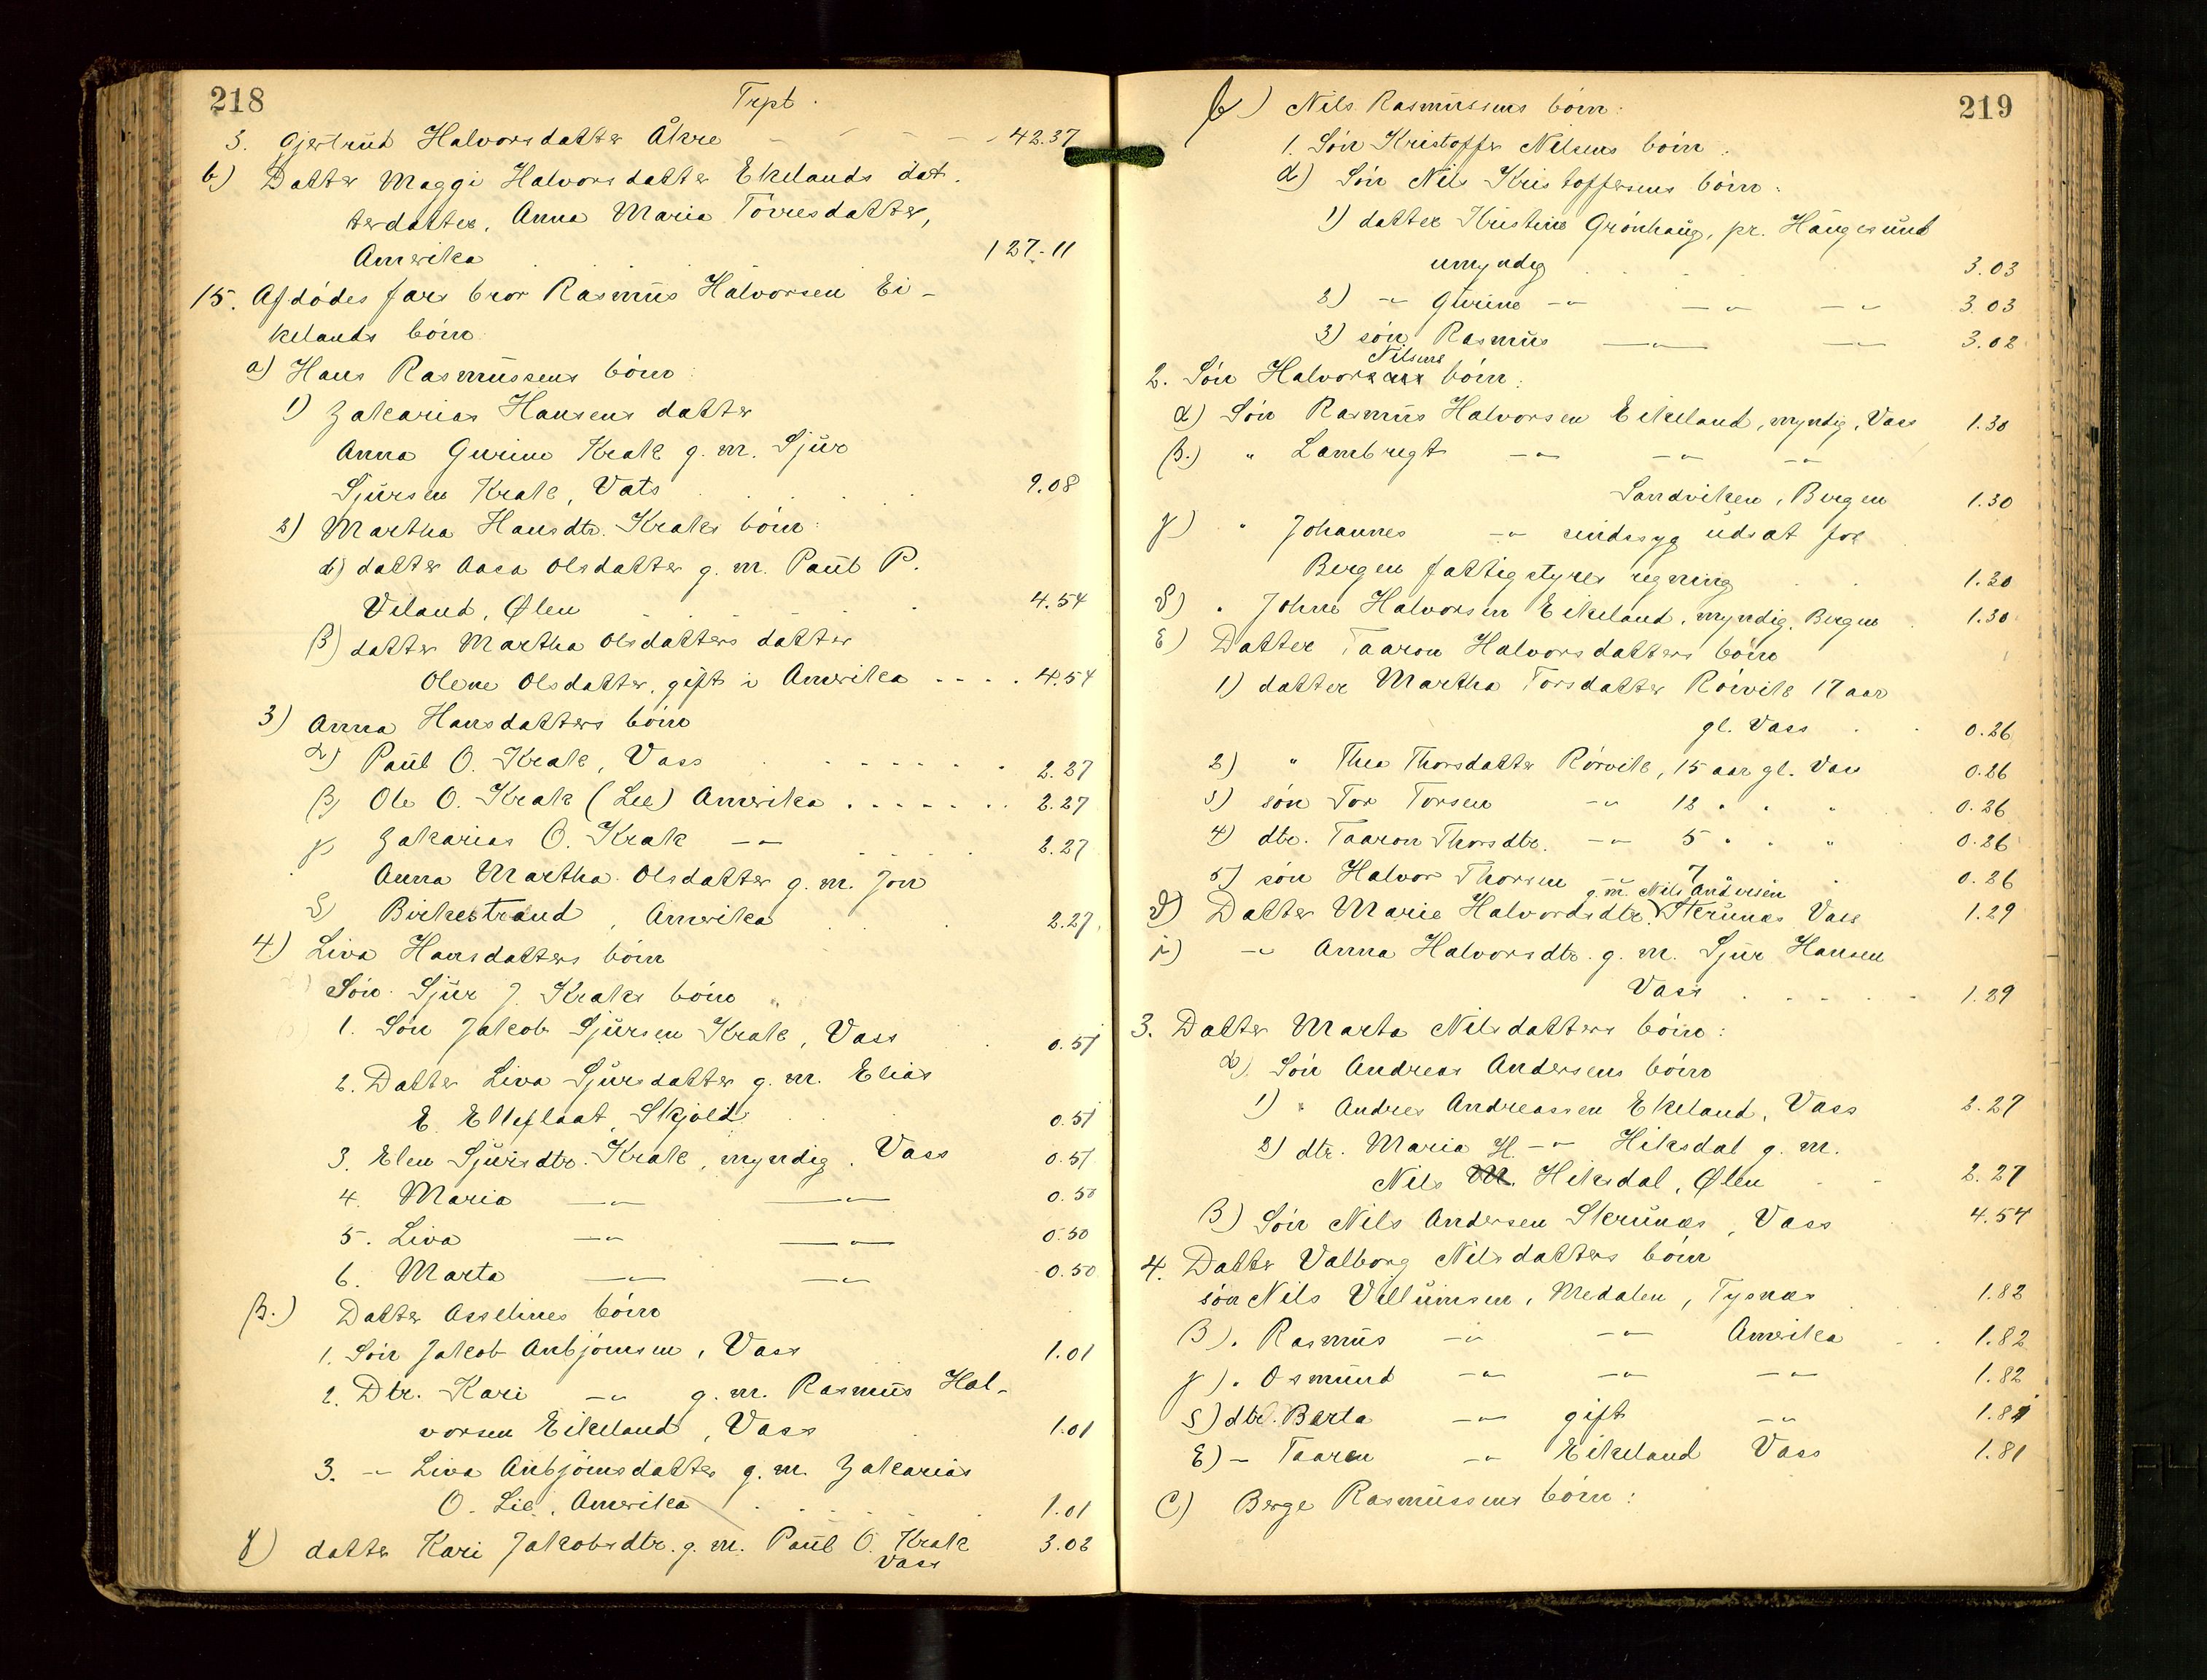 218
Trpt.
3. Gjertrud Halvorsdatter Åkre - - - - 42.37
b) Datter Maggi Halvorsdatter Ekelands dat-
terdatter, Anna Maria Torresdatter,
Amerika 127.11
15. Afdødes fars bror Rasmus Halvorsen Ei-
kelands børn
a) Hans Rasmussens børn:
1) Zakarias Hansens datter
Anna Gurine Krak g. m. Sjur
Sjursen Krak, Vats 9.08
2) Martha Hansdtr. Kraks børn:
α) datter Aasa Olsdatter g. m. Paul P.
Viland, Ølen 4.54
β) datter Martha Olsdatters datter
Olene Olsdatter, gift i Amerika - - - . 4.54
3) Anna Hansdatters børn
α) Paul O. Krak, Vass 2.27
β) Ole O. Krak (Lie) Amerika . . . . . . 2.27
γ) Zakarias O. Krak -"- 2.27
Anna Martha Olsdatter g. m. Jon
δ) Birkestrand, Amerika 2.27
4) Liva Hansdatters børn
Søn Sjur J. Kraks børn
1. Søn Jakob Sjursen Krak, Vass 0.51
2. Datter Liva Sjursdatter g. m. Elias
E. Ekeflaat, Skjold 0.51
3. Elen Sjursdtr. Krak, myndig. Vass 0.51
4. Maria -"- -"- 0.50
5. Liva -"- -"- 0.50
6. Marta -"- -"- 0.50
β.) Datter Asselines børn
1. Søn Jakob Anbjørnsen, Vass 1.01
2. Dtr. Kari -"- g. m. Rasmus Hal-
vorsen Eikeland, Vass 1.01
3. -"- Liva Anbjørnsdatter g. m. Zakarias
O. Lie, Amerika 1.01
γ) datter Kari Jakobsdtr. g. m. Paul O. Krak 3.02
Vass
219
b) Nils Rasmussens børn:
1. Søn Kristoffer Nilsens børn:
α) Søn Nils Kristoffersens børn:
1) datter Kristine Grønhaug, pr. Haugesund
umyndig 3.03
2) -"- Gurine -"- -"- -"- 3.03
3) søn Rasmus -"- -"- 3.02
Nilsens
2. Søn Halvors børn:
α) Søn Rasmus Halvorsen Eikeland, myndig, Vass 1.30
β.) " Lambregt -"- -"- -"-
Sandviken, Bergen 1.30
γ) " Johannes -"- sindssyg udsat for
Bergen fattigstyres regning 1.30
δ) " Johne Halvorsen Eikeland, myndig. Bergen 1.30
ε) Datter Taaron Halvorsdatters børn
1) datter Martha Torsdatter Rørvik 17 aar
gl. Vass 0.26
2) " Thea Thorsdatter Rørvik, 15 aar gl. Vass 0.26
3) søn Tor Torsen -"- 12 " " " 0.26
4) dtr. Taaron Thorsdtr. -"- 5 " " " 0.26
5) søn Halvor Thorsen -"- 7 " 0.26
g. m. Nils Andersen
Datter Marie Halvordsdtr. Skrunes Vass 1.29
-"- Anna Halvorsdtr. g. m. Sjur Hansen
Vass 1.29
3. Datter Marta Nilsdatters børn:
α) Søn Andreas Andersens børn
1) " Andres Andreassen Ekeland, Vass 2.27
2) dtr. Maria H. -"- Hiksdal g. m.
Nils M. Hiksdal, Ølen 2.27
β) Søn Nils Andersen Skrunes, Vass 4.54
4. Datter Valborg Nilsdatters børn
søn Nils Villumsen, Medalen, Tysnæs 1.82
β). Rasmus -"- -"- Amerika 1.82
γ). Osmund -"- -"- -"- 1.82
δ) dtr. Berta -"- gift -"- 1.81
ε) - Taaren -"- Eikeland Vass 1.81
C) Berge Rasmussens børn: